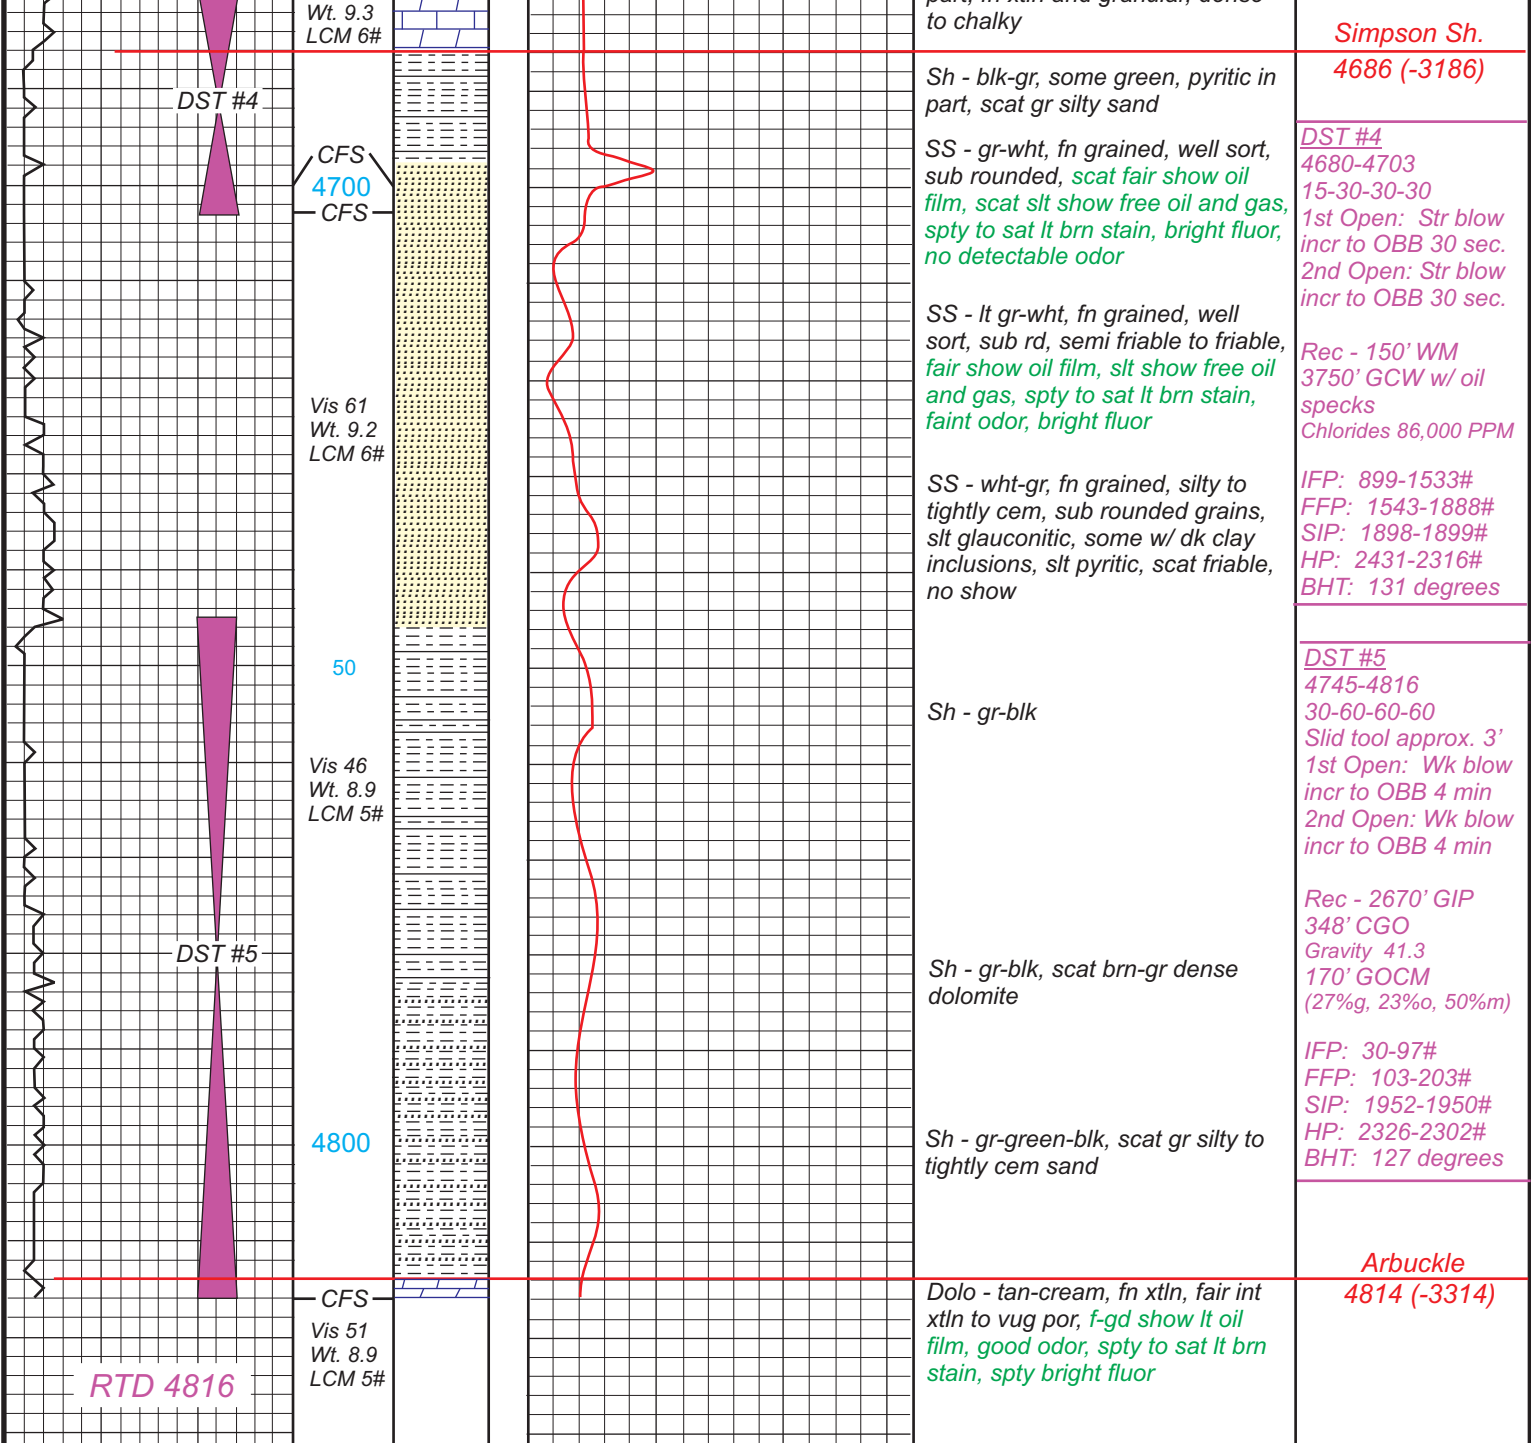 Wt. 9.3
LCM 6#
DST #4
CFS
4700
CFS
Vis 61
Wt. 9.2
LCM 6#
50
Vis 46
Wt. 8.9
LCM 5#
DST #5
4800
CFS
Vis 51
Wt. 8.9
LCM 5#
RTD 4816
part, fn xtln and granular, dense
to chalky
Sh - blk-gr, some green, pyritic in
part, scat gr silty sand
SS - gr-wht, fn grained, well sort,
sub rounded, scat fair show oil
film, scat slt show free oil and gas,
spty to sat lt brn stain, bright fluor,
no detectable odor
SS - lt gr-wht, fn grained, well
sort, sub rd, semi friable to friable,
fair show oil film, slt show free oil
and gas, spty to sat lt brn stain,
faint odor, bright fluor
SS - wht-gr, fn grained, silty to
tightly cem, sub rounded grains,
slt glauconitic, some w/ dk clay
inclusions, slt pyritic, scat friable,
no show
Sh - gr-blk
Sh - gr-blk, scat brn-gr dense
dolomite
Sh - gr-green-blk, scat gr silty to
tightly cem sand
Dolo - tan-cream, fn xtln, fair int
xtln to vug por, f-gd show lt oil
film, good odor, spty to sat lt brn
stain, spty bright fluor
Simpson Sh.
4686 (-3186)
DST #4
4680-4703
15-30-30-30
1st Open:  Str blow
incr to OBB 30 sec.
2nd Open: Str blow
incr to OBB 30 sec.
Rec - 150' WM
3750' GCW w/ oil
specks
Chlorides 86,000 PPM
IFP:  899-1533#
FFP:  1543-1888#
SIP:  1898-1899#
HP:  2431-2316#
BHT:  131 degrees
DST #5
4745-4816
30-60-60-60
Slid tool approx. 3'
1st Open:  Wk blow
incr to OBB 4 min
2nd Open: Wk blow
incr to OBB 4 min
Rec - 2670' GIP
348' CGO
Gravity  41.3
170' GOCM
(27%g, 23%o, 50%m)
IFP:  30-97#
FFP:  103-203#
SIP:  1952-1950#
HP:  2326-2302#
BHT:  127 degrees
Arbuckle
4814 (-3314)